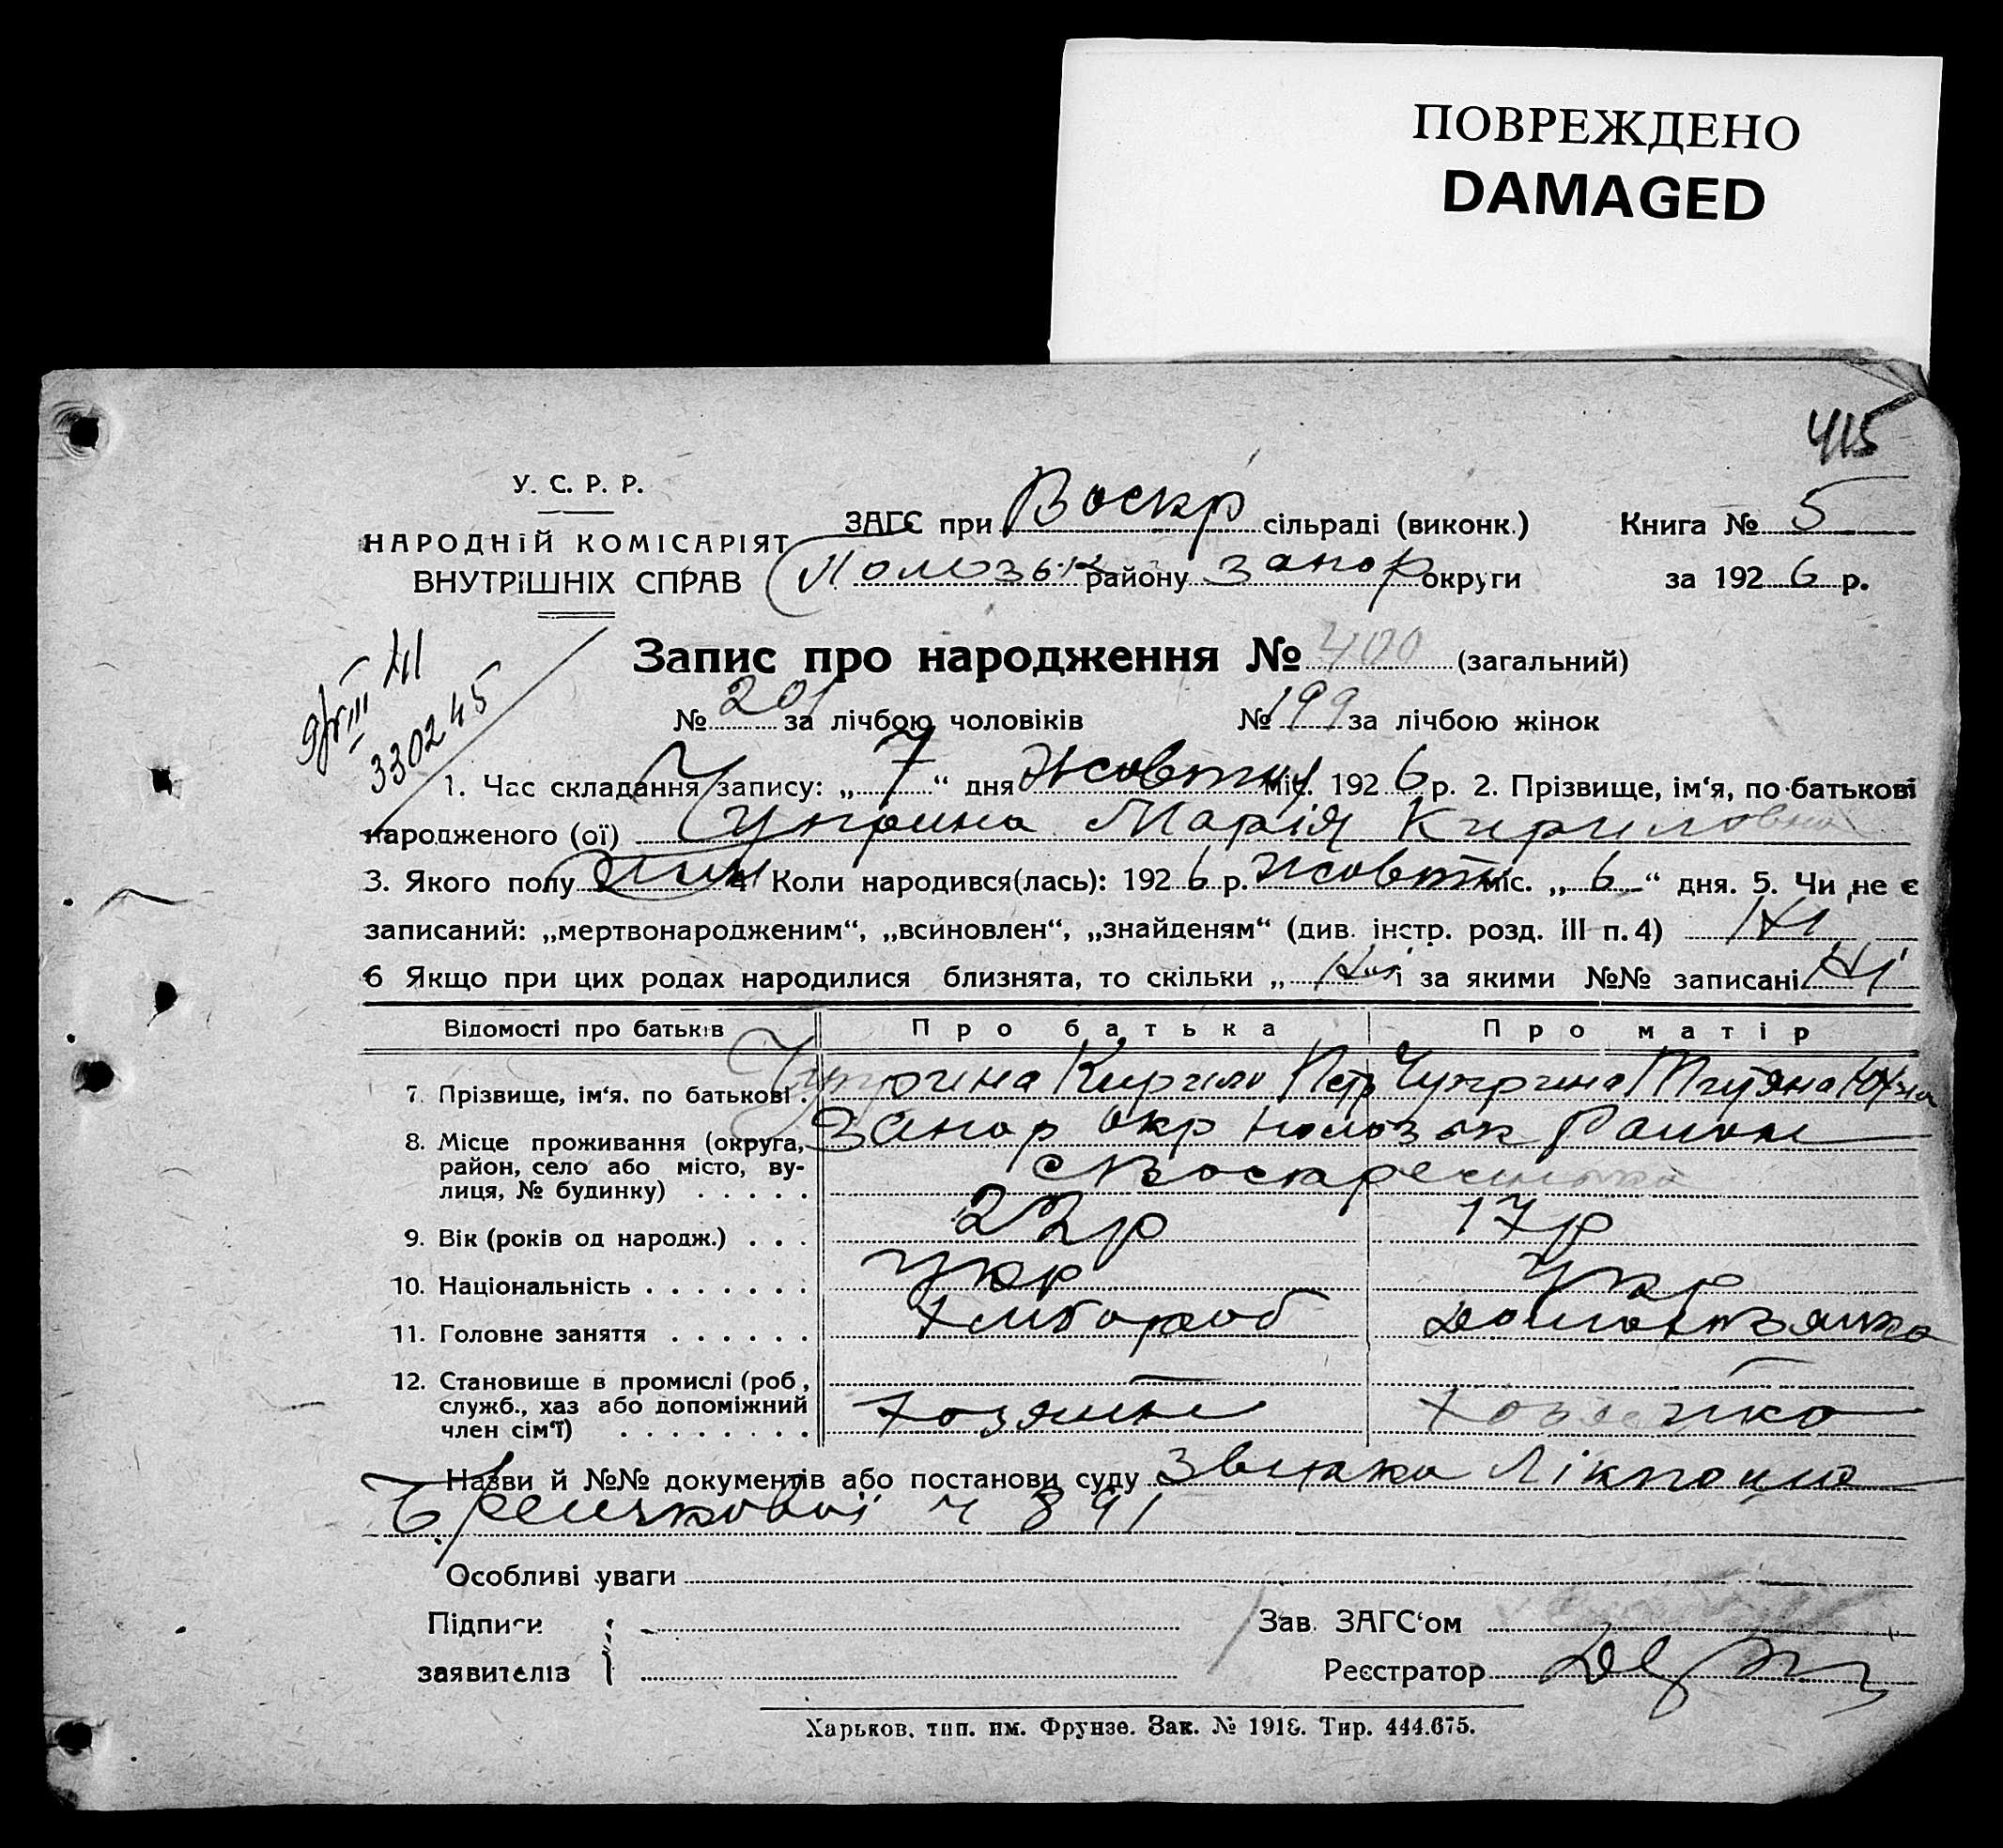 ПОВРЕЖДЕНО
DAMAGED
415
У. С. Р. Р.
НАРОДНІЙ КОМІСАРІЯТ
ВНУТРІШНІХ СПРАВ
ЗАГС при Воскр сільраді (виконк.) Книга № 5
Полозьк району Запор округи за 1926 р.
Запис про народження № 400 (загальний)
41
330245
№ 201 за лічбою чоловіків № 199 за лічбою жінок
1. Час складання запису: „7“ дня Жовтня міс. 1926 р. 2. Прізвище, ім‘я, по-батькові
народженого (ої) Чуприна Марія Кириловна
3. Якого полу жін 4 Коли народився(лась): 1926 р. Жовтн міс. „6“ дня. 5. Чи не є
записаний: „мертвонародженим“, „всиновлен“, „знайденям“ (див. інстр. розд. III п. 4) Ні
6 Якщо при цих родах народилися близнята, то скільки „ і за якими №№ записані Ні
Відомості про батьків Про батька Про матір
7. Прізвище, ім‘я. по батькові. Чуприна Кирило Петр Чуприна Титяна
8. Місце проживання (округа, Запор окр Полозьк Район
район, село або місто, ву- с Воскресенка
лиця, № будинку) . . . . .
9. Вік (років од народж.) . . . 22р 17р
10. Національність . . . . . . . Укр Укр
11. Головне заняття . . . . . . Хлібороб домохозяйка
12. Становище в промислі (роб,
служб., хаз або допоміжний Хозяин Хозяйка
член сім‘ї) . . . . . . . .
Назви й №№ документів або постанови суду Лікпома
ч 891
Особливі уваги
Підписи Зав. ЗАГС‘ом
заявителів Реєстратор
Харьков, тип. им. Фрунзе. Зак. № 1918. Тир. 444.675.